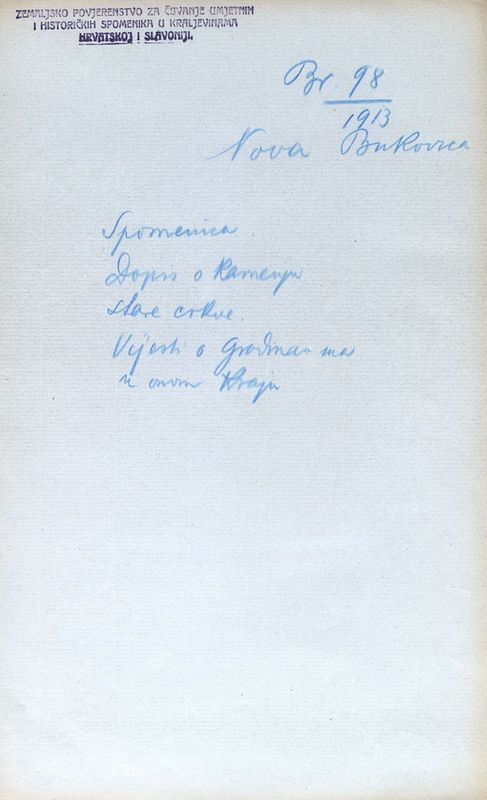 ZEMALJSKO POVJERENSTVO ZA ČUVANJE UMJETNIH
I HISTORIČKIH SPOMENIKA U KRALJEVINAMA
HRVATSKOJ I SLAVONIJI.
Br. 98
1913
Nova Bukovica
Spomenica.
Dopis o kamenju
stare crkve.
Vijesti o gradinama
u onom kraju